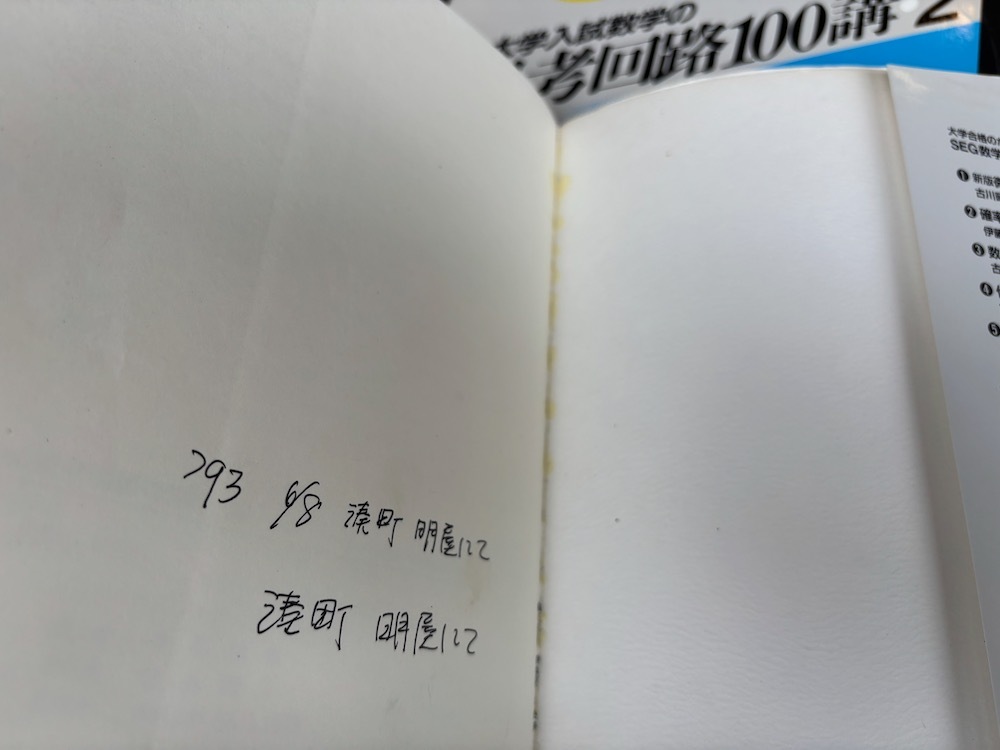 大学入試数学の
考回路100講 2
大学合格の
SEG数学
❶ 新版
古川
❷ 確率
伊藤
❸ 数
古
❹
❺
'93 6/8 湊町 明屋にて
湊町 明屋にて